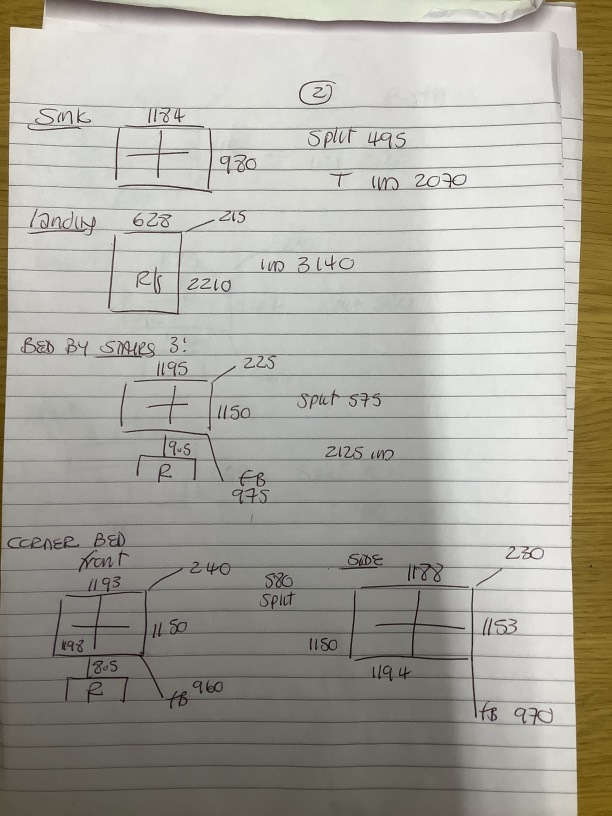 2
Sink
1184
Split 495
980
T IID 2070
Landing
628
215
IID 3140
R/s
2210
BED BY STAIRS 3!
1195
225
1150
Split 575
905
2125 IID
R
FB
975
CORNER BED
front
SIDE
230
1193
240
580
1188
Split
1150
1153
1198
1150
805
1194
R
fB 960
fB 970